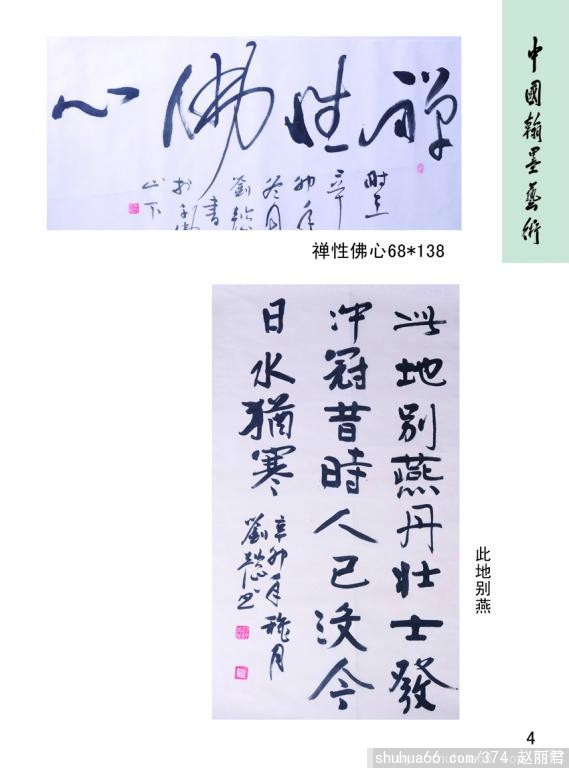 中國翰墨藝術
禅性佛心
時在
辛
卯年
冬月
劉
書
於
山下
禅性佛心68*138
此地别燕丹壮士發
冲冠昔時人已没今
日水猶寒
辛卯年
月
劉
书
此地别燕
4
shuhua66.com/374 赵丽君